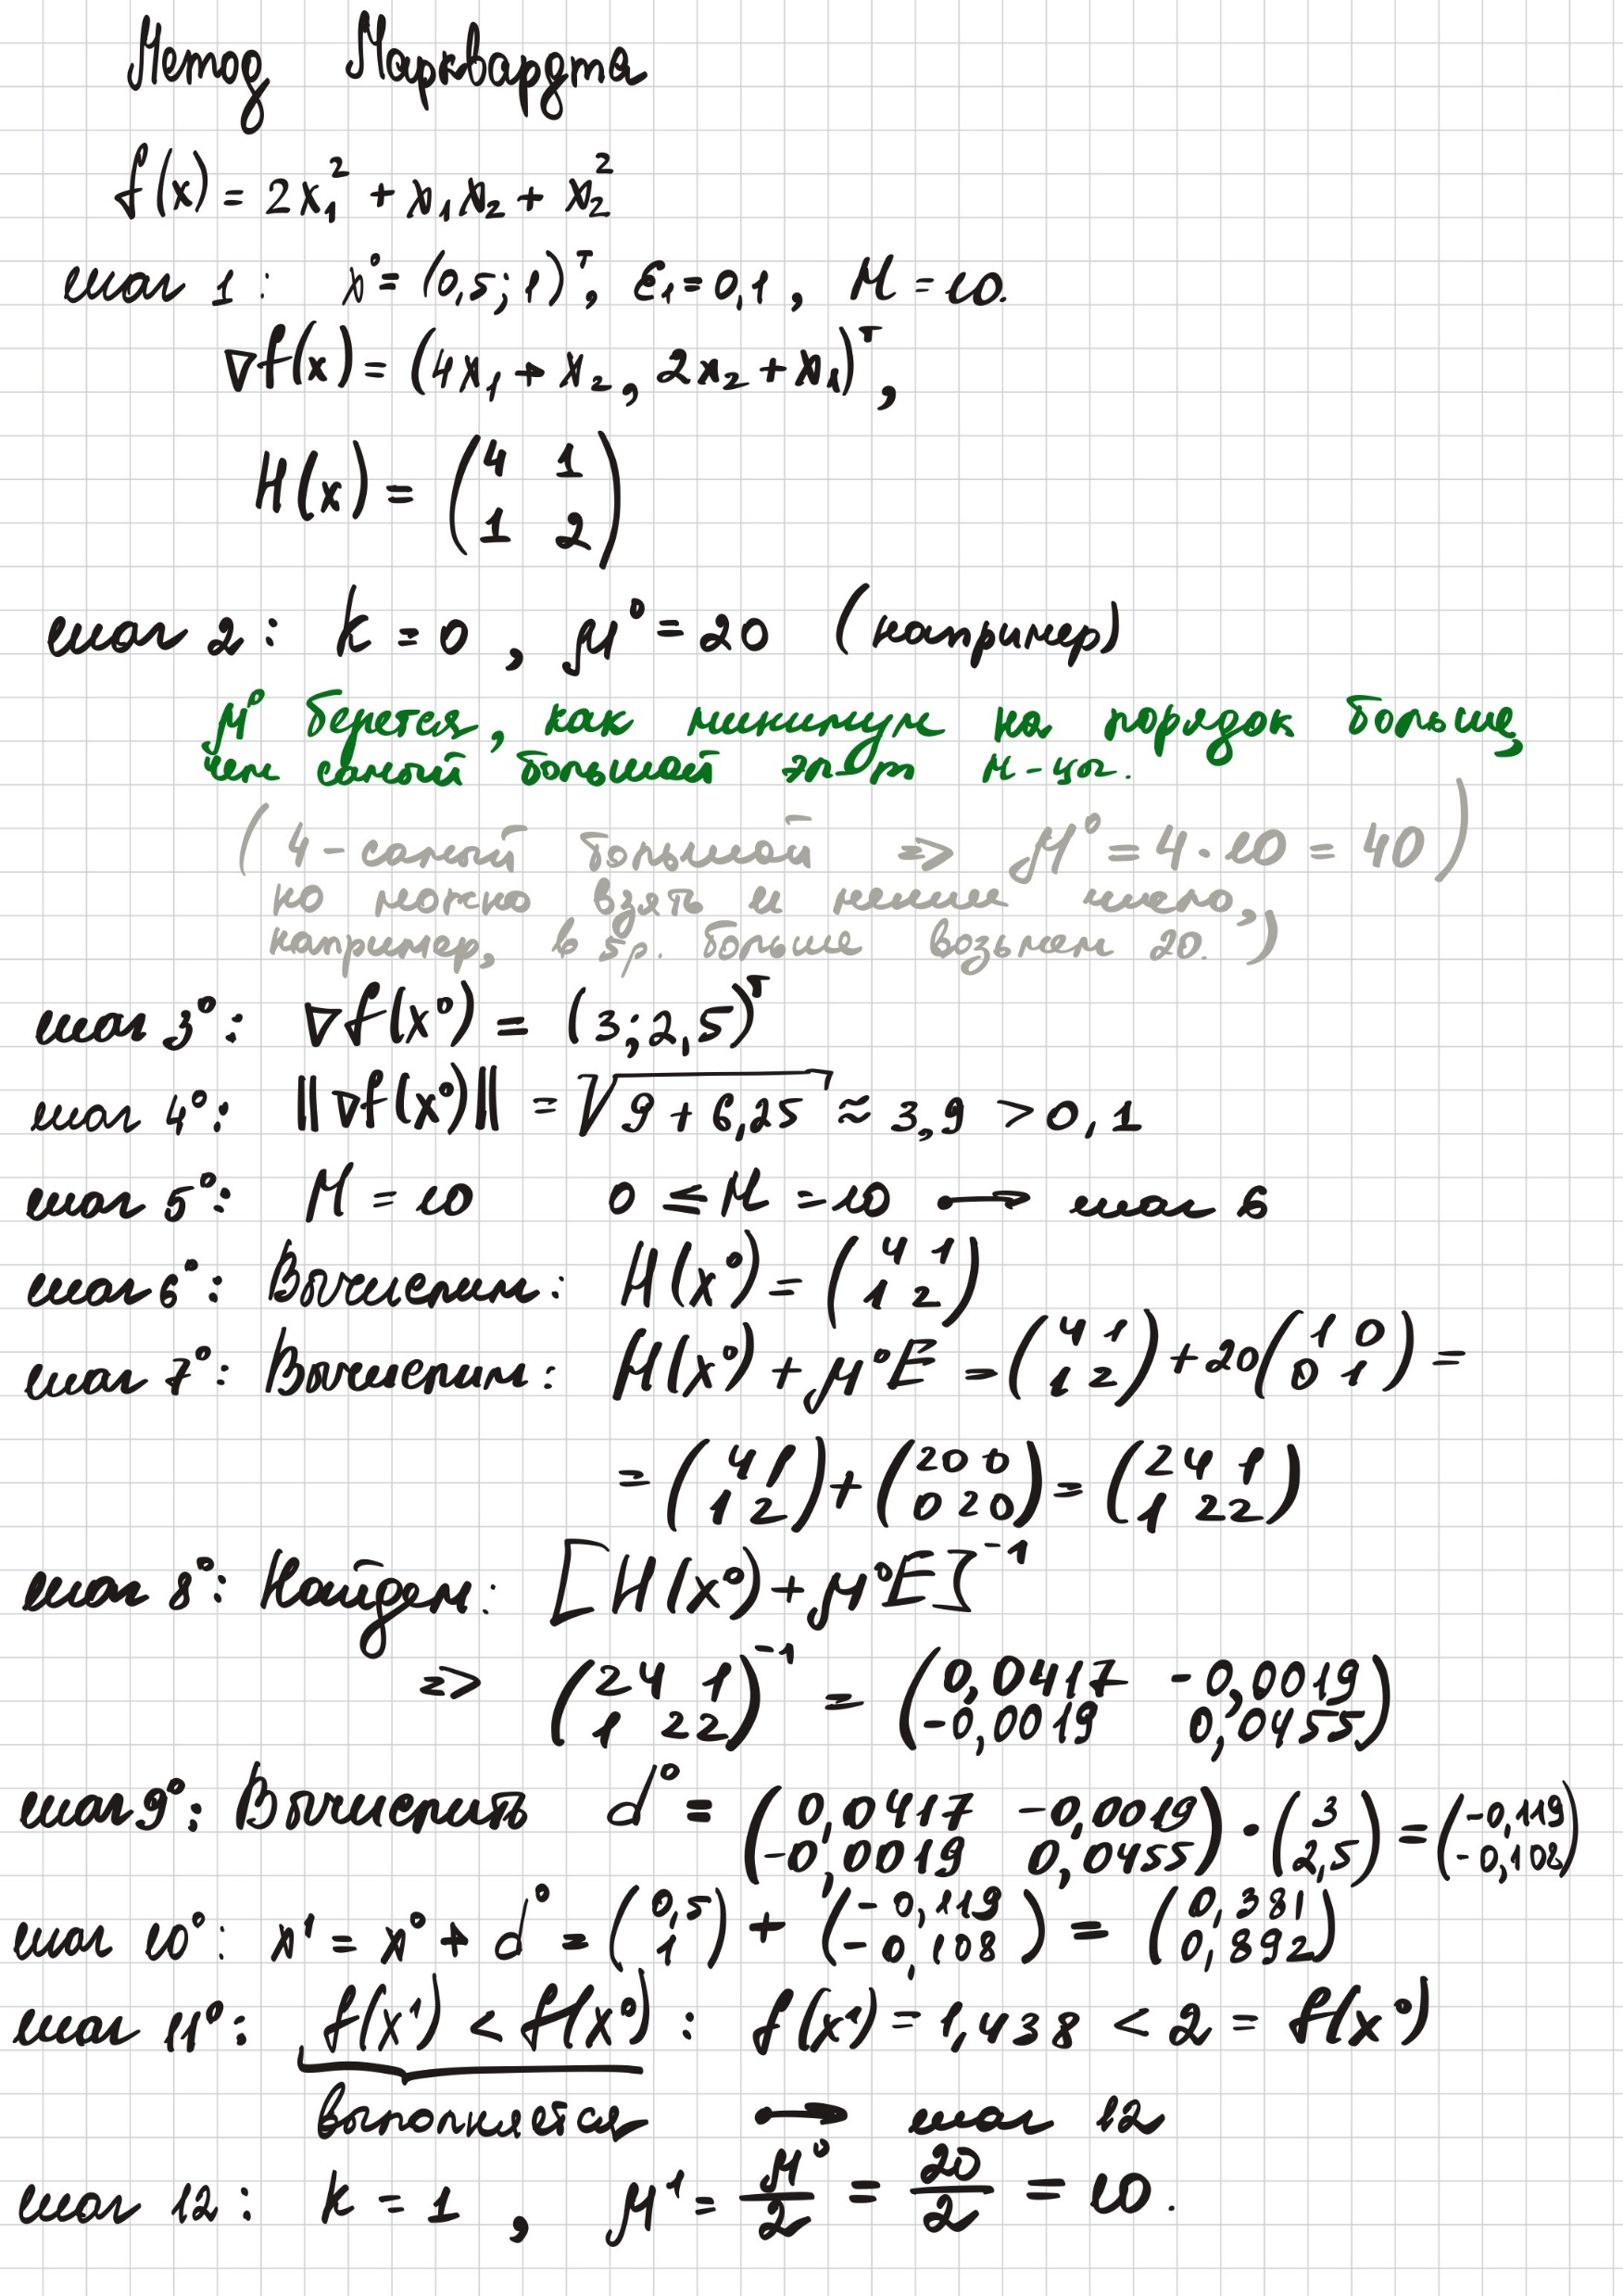 Метод Марквардта
f(x) = 2x₁² + x₁x₂ + x₂²
шаг 1: x⁰ = (0,5; 1)ᵀ, ε₁ = 0,1, M = 10.
∇f(x) = (4x₁ + x₂, 2x₂ + x₁)ᵀ,
H(x) = (4 1
1 2)
шаг 2: k = 0, μ⁰ = 20 (например)
μ⁰ берется, как минимум на порядок больше,
чем самый большой эл-т м-цы.
(4 - самый большой => μ⁰ = 4 · 10 = 40)
но можно взять и меньше число,
например, в 5 р. больше возьмем 20.)
шаг 3⁰: ∇f(x⁰) = (3; 2,5)ᵀ
шаг 4⁰: ||∇f(x⁰)|| = √(9 + 6,25) ≈ 3,9 > 0,1
шаг 5⁰: M = 10 0 ≤ M = 10 → шаг 6
шаг 6⁰: Вычислим: H(x⁰) = (4 1
1 2)
шаг 7⁰: Вычислим: H(x⁰) + μ⁰E = (4 1 + 20(1 0 =
1 2) 0 1)
= (4 1 + (20 0 = (24 1
1 2) 0 20) 1 22)
шаг 8⁰: Найдем: [H(x⁰) + μ⁰E]⁻¹
=> (24 1 ⁻¹ = (0,0417 -0,0019
1 22) -0,0019 0,0455)
шаг 9⁰: Вычислить d⁰ = (0,0417 -0,0019 · (3 = (-0,119
-0,0019 0,0455) 2,5) -0,108)
шаг 10⁰: x¹ = x⁰ + d⁰ = (0,5 + (-0,119 = (0,381
1) -0,108) 0,892)
шаг 11⁰: f(x¹) < f(x⁰) : f(x¹) = 1,438 < 2 = f(x⁰)
выполняется → шаг 12
шаг 12: k = 1, μ¹ = μ⁰/2 = 20/2 = 10.